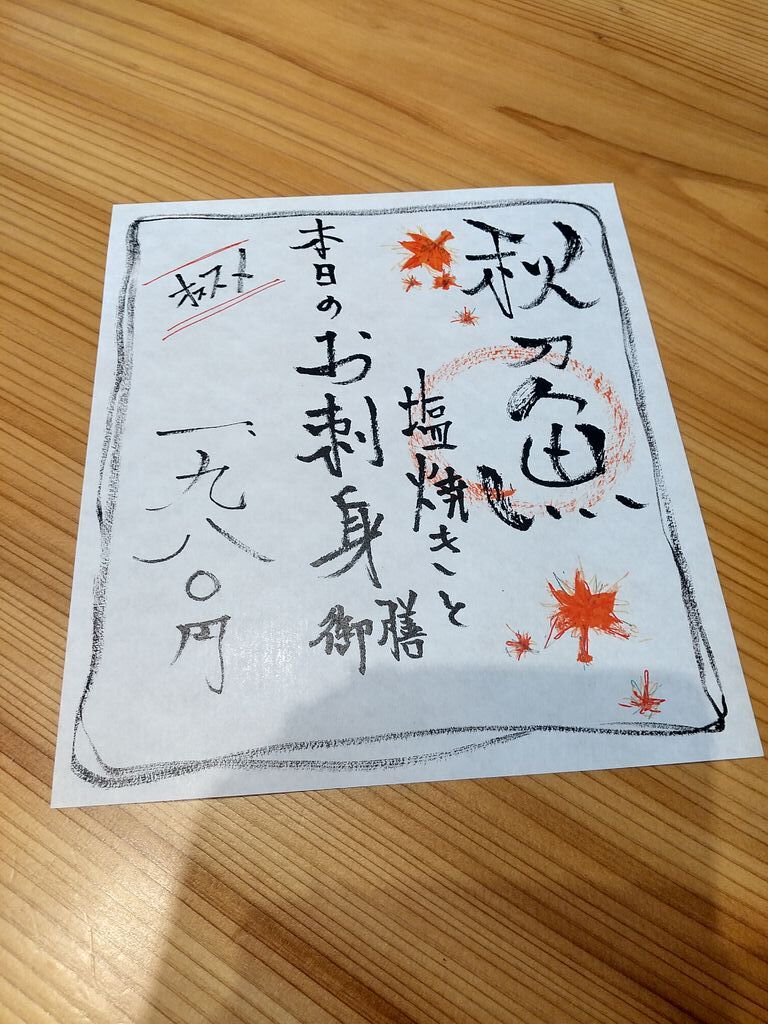 秋刀魚
塩焼きと
本日のお刺身
御膳
一、九八〇円